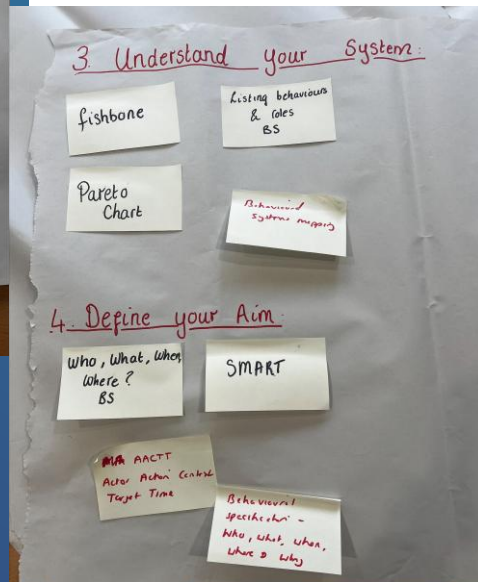 3. Understand your System:
fishbone
Listing behaviours
& roles
BS
Pareto
Chart
Behavioural
systems mapping
4. Define your Aim:
Who, What, When,
Where?
BS
SMART
AACTT
Actor Action Context
Target Time
Behavioural
specification -
Who, what, when,
where & why